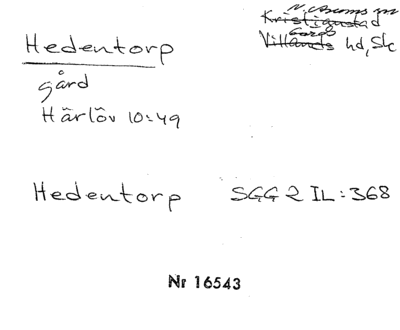 N. Åsums sn
Kristianstad
Gärds
Villands hd, Sk
Hedentorp
gård
Härlöv 10:49
Hedentorp SGG 2 IL:368
Nr 16543